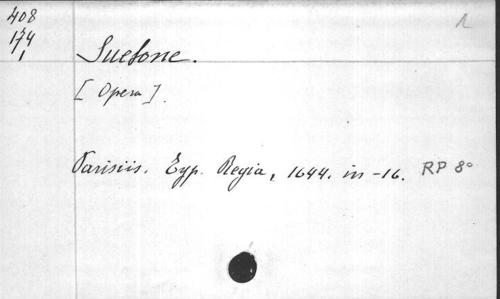 408
174
1
Suetone.
[Opera].
Parisiis. Typ. Regia, 1644. in-16. RP 8°